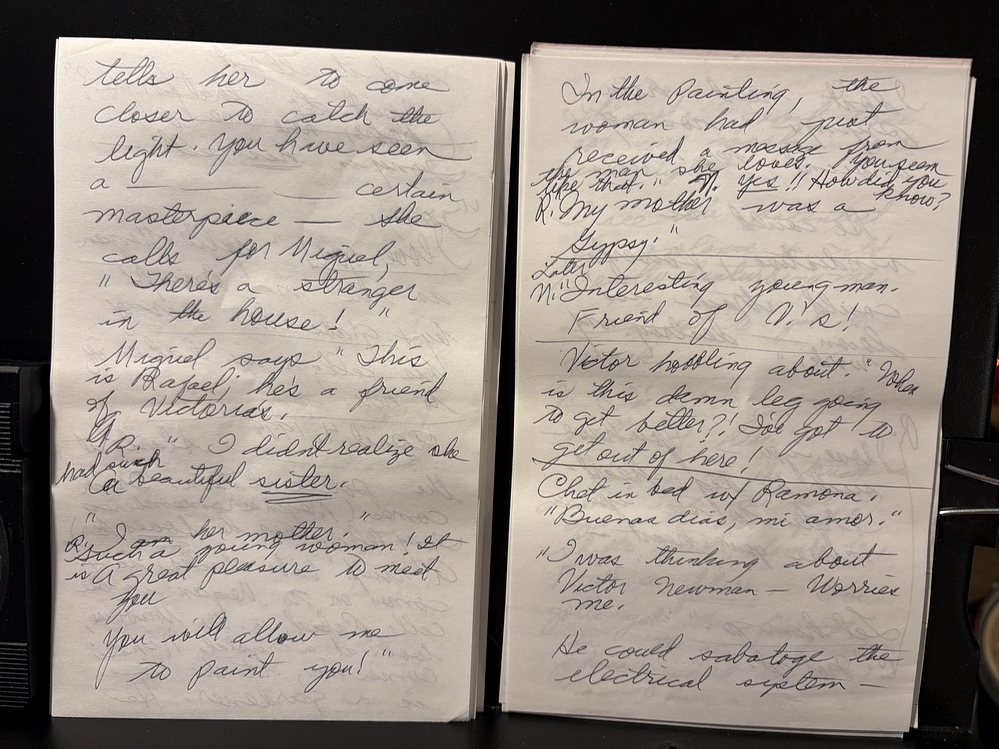 tells her to come
closer to catch the
light. You have seen
a ________ certain
masterpiece — She
calls for Miguel,
"There's a stranger
in the house!"
Miguel says "This
is Rafael; he's a friend
of Victorias.
R. " I didn't realize she
had such
a beautiful sister.
"I am her mother."
R. Such a young woman! It
is a great pleasure to meet
you
You will allow me
to paint you!"
In the Painting, the
woman had just
received a message from
the man she loves. You seem
like that." N. Yes!! How did you
know?
R. "My mother was a
Gypsy."
Later
N: "Interesting young man.
Friend of V.'s!
Victor hobbling about. "When
is this damn leg going
to get better?! I've got to
get out of here!
Chet in bed w/ Ramona.
"Buenas dias, mi amor."
"I was thinking about
Victor Newman — Worries
me.
He could sabotage the
electrical system —